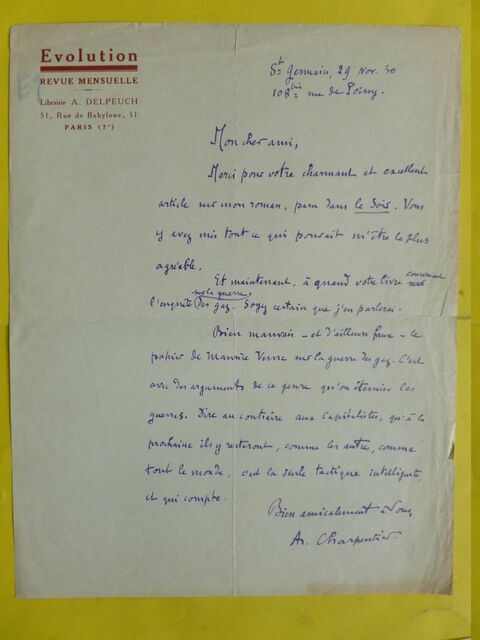 Evolution
REVUE MENSUELLE
Librairie A. DELPEUCH
51, Rue de Babylone, 51
PARIS (7e)
St Germain, 29 Nov. 30
108bis rue de Poissy.
Mon cher ami,
Merci pour votre charmant et excellent
article sur mon roman, paru dans le Soir. Vous
y avez mis tout ce qui pouvait m'être le plus
agréable.
Et maintenant, à quand votre livre concernant
l'enquête sur la guerre des gaz. Soyez certain que j'en parlerai.
Bien mauvais - et d'ailleurs faux - le
papier de Maurice Verne sur la guerre des gaz. C'est
avec des arguments de ce genre qu'on éternise les
guerres. Dire au contraire aux capitalistes, qu'à la
prochaine ils y resteront, comme les autres, comme
tout le monde, c'est la seule tactique intelligente,
et qui compte.
Bien amicalement à vous,
Ar. Charpentier.